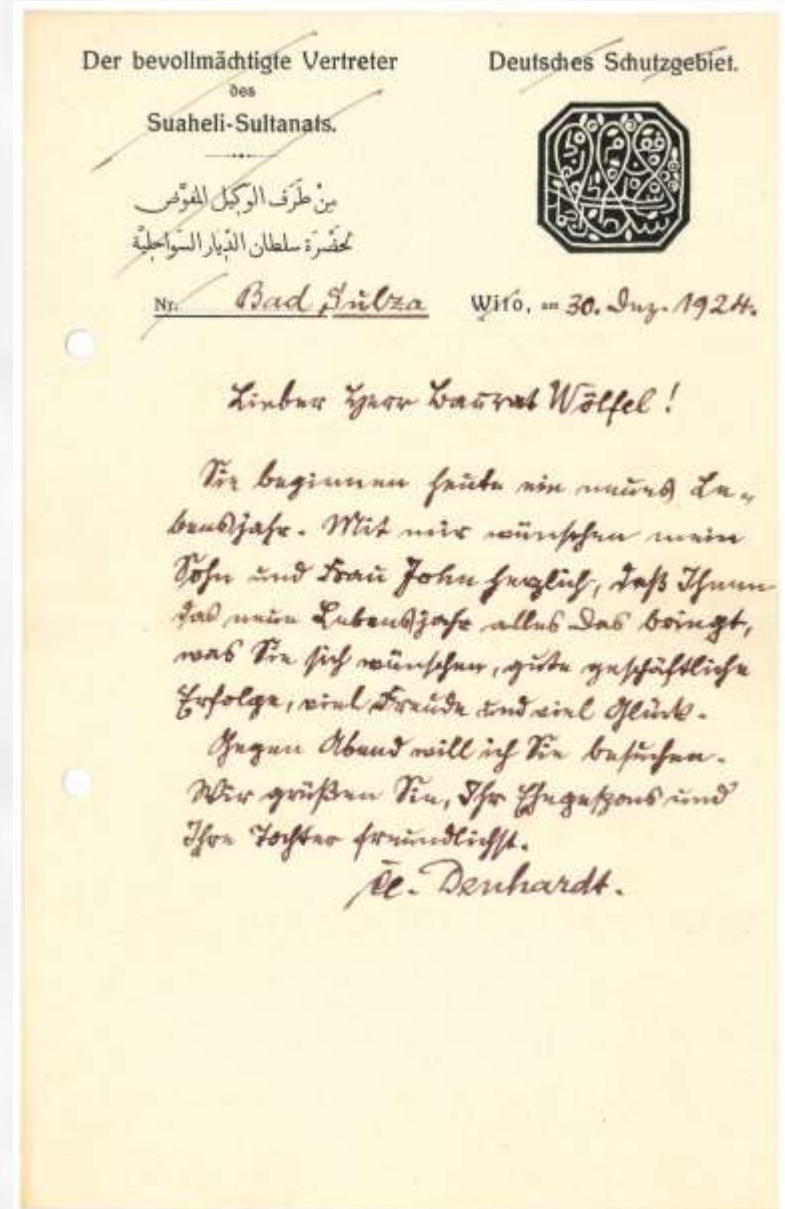 Der bevollmächtigte Vertreter
des
Suaheli-Sultanats.
Deutsches Schutzgebiet.
مِنْ طَرَف الوكيل المفوّض
لحَضْرَة سلطان الدّيار السّواحليّة
Nr. Bad Sulza Wito, am 30. Dez. 1924.
Lieber Herr Baurat Wölfel!
Sie beginnen heute ein neues Le-
bensjahr. Mit mir wünschen mein
Sohn und Frau John herzlich, daß Ihnen
das neue Lebensjahr alles das bringt,
was Sie sich wünschen, gute geschäftliche
Erfolge, viel Freude und viel Glück.
Gegen Abend will ich Sie besuchen.
Wir grüßen Sie, Ihr Ehegespons und
Ihre Tochter freundlichst.
Denhardt.